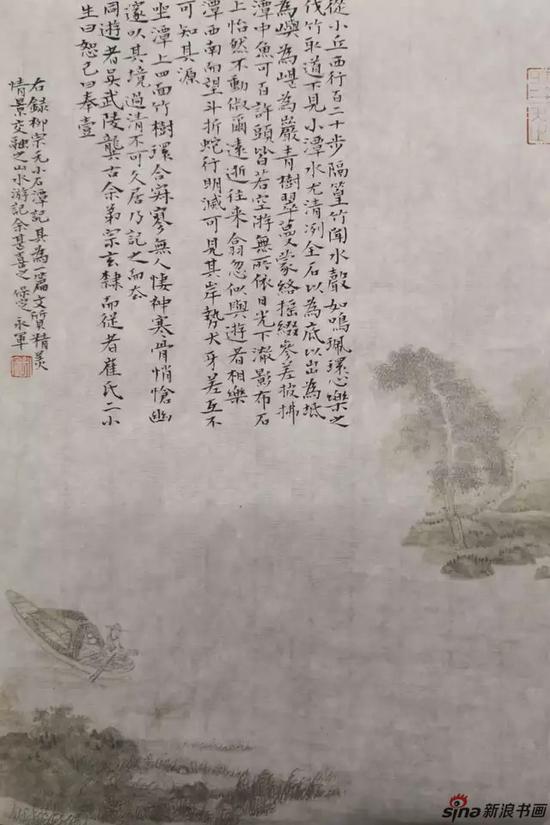 從小丘西行百二十步隔篁竹聞水聲如鳴珮環心樂之
伐竹取道下見小潭水尤清冽全石以為底以出為坻
為嶼為嵁為巖青樹翠蔓蒙絡搖綴參差披拂
潭中魚可百許頭皆若空游無所依日光下澈影布石
上怡然不動俶爾遠逝往来翕忽似與遊者相樂
潭西南而望斗折蛇行明滅可見其岸勢犬牙差互不
可知其源
坐潭上四面竹樹環合寂寥無人悽神寒骨悄愴幽
邃以其境過清不可久居乃記之而去
同遊者吳武陵龔古余弟宗玄隸而從者崔氏二小
生曰恕己曰奉壹
右録柳宗元小石潭記其為一篇文質精美
情景交融之山水游記余甚喜之保定永軍
sina新浪书画